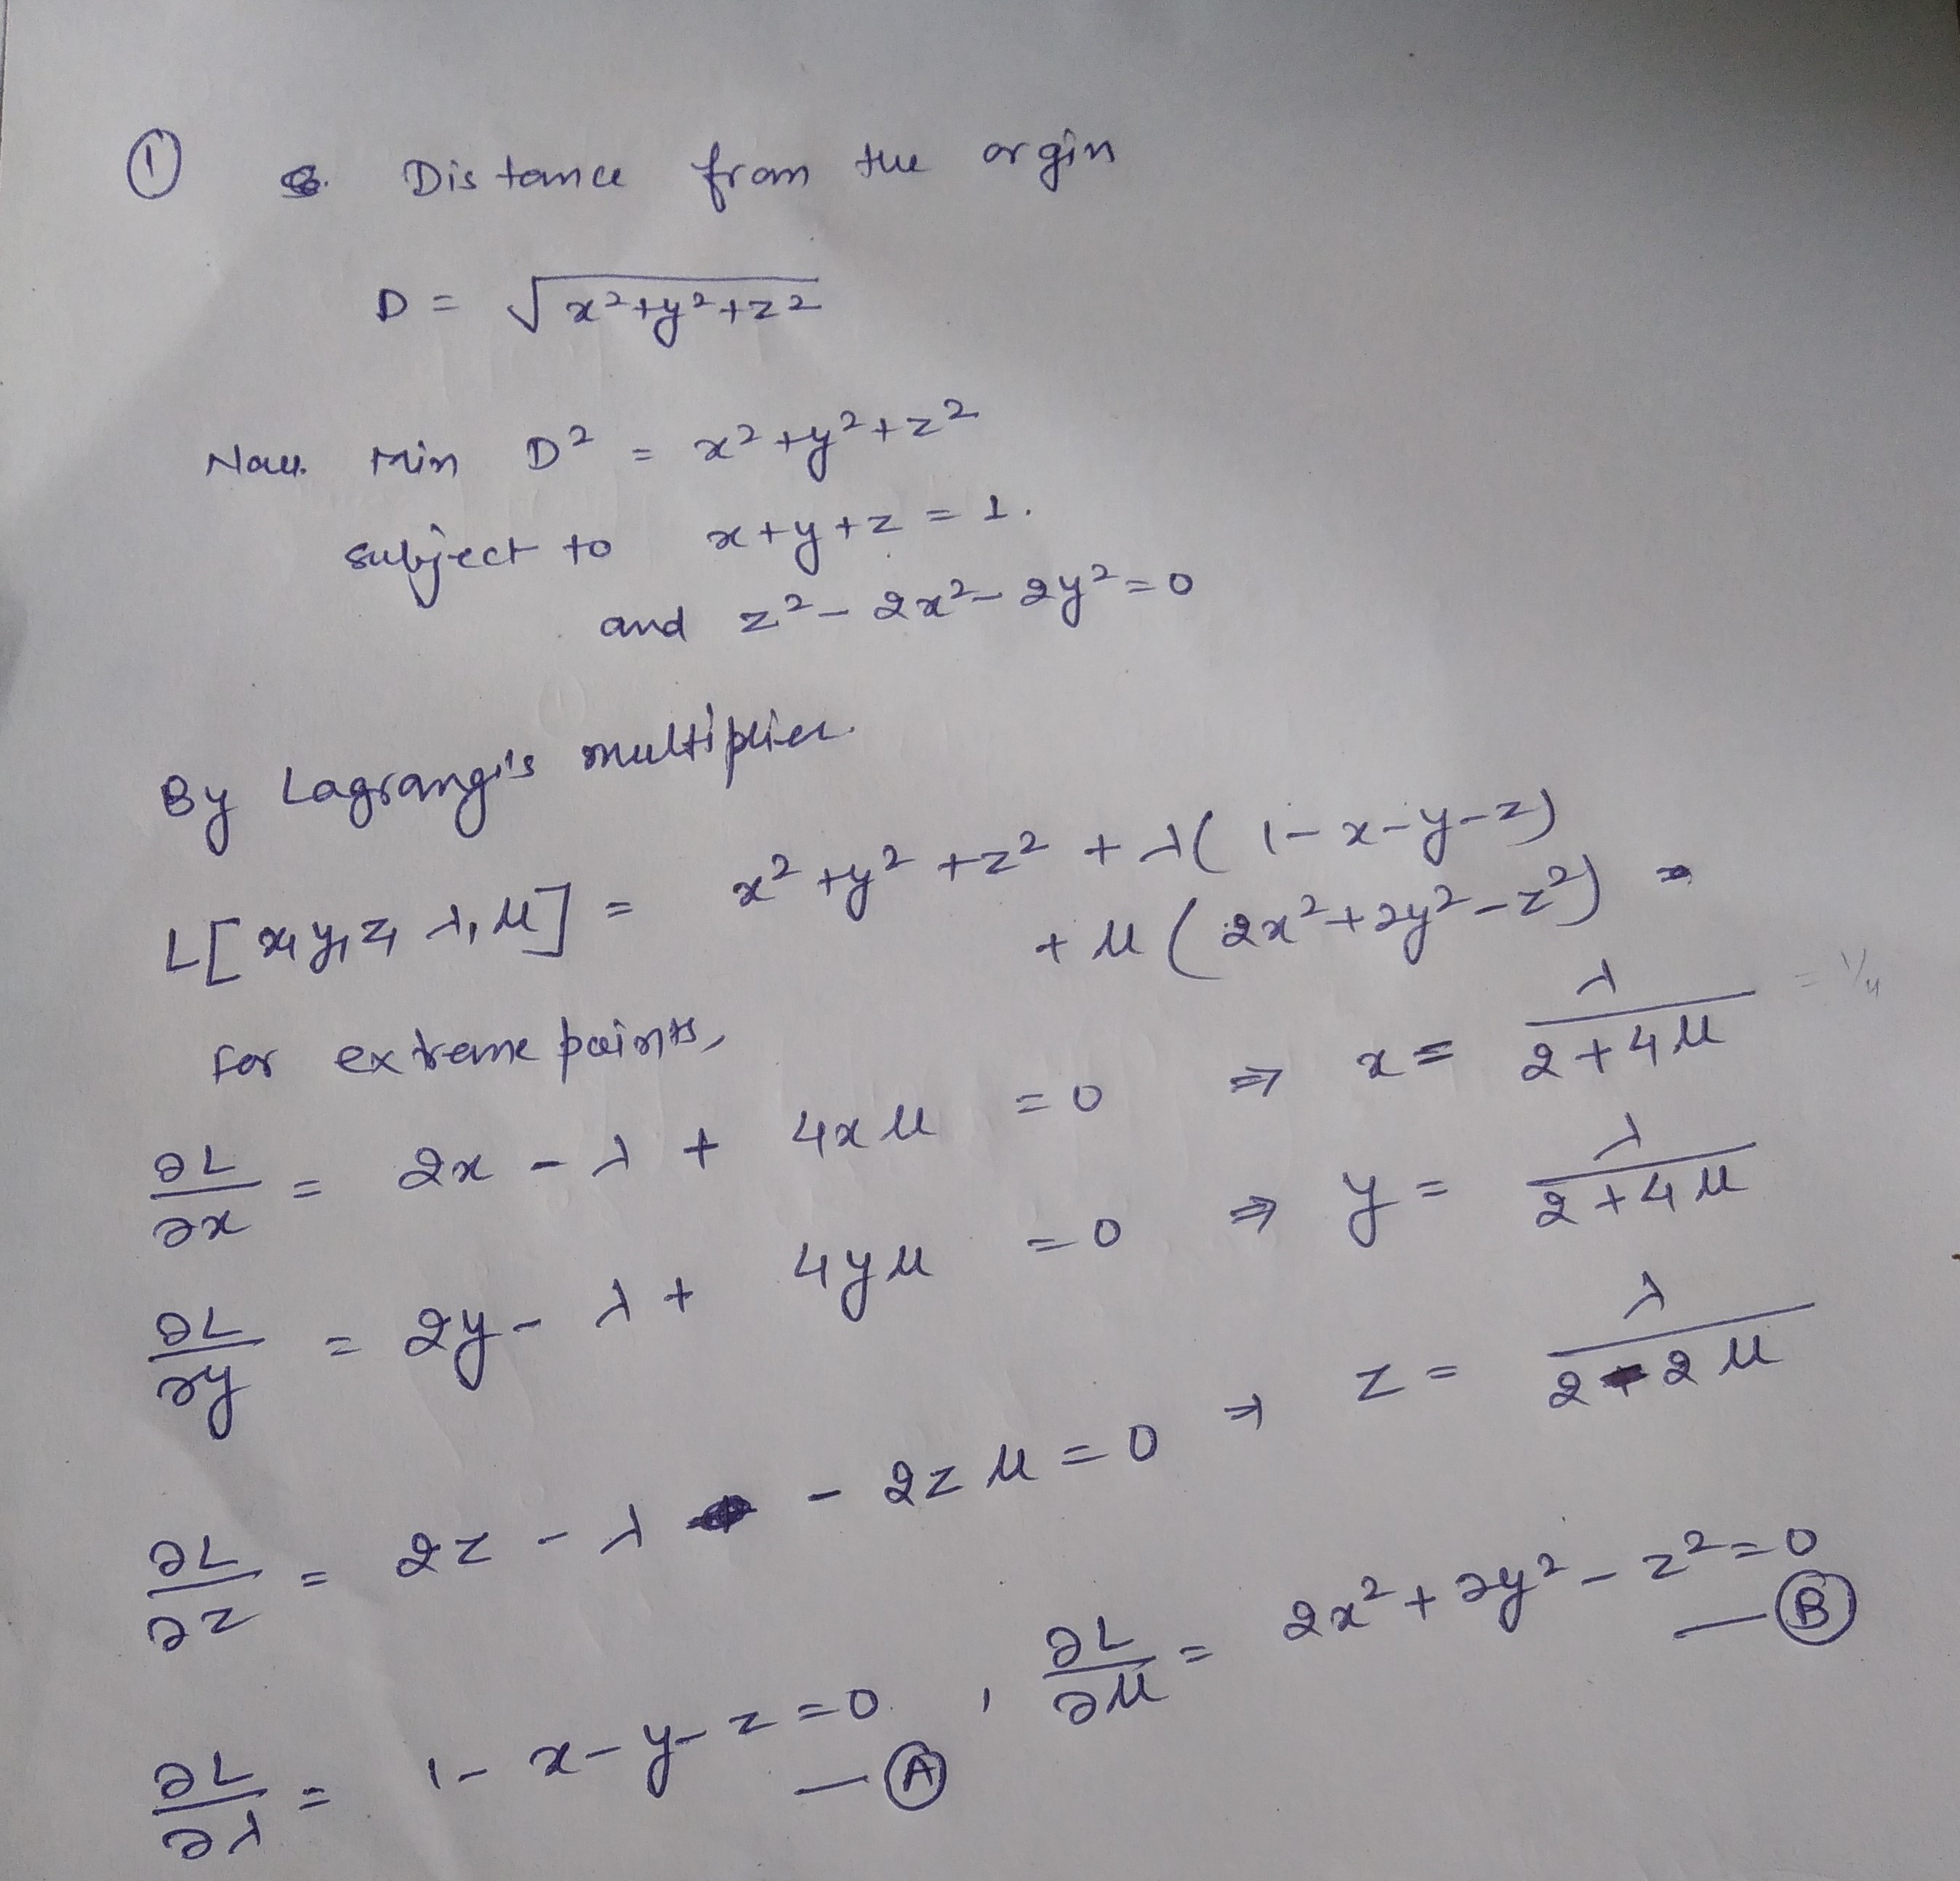 ① Distance from the orgin
D = √x²+y²+z²
Now Min D² = x²+y²+z²
subject to x+y+z = 1.
and z² - 2x² - 2y² = 0
By Lagrang's multiplier.
L[x,y,z,λ,μ] = x²+y²+z² + λ(1-x-y-z)
+ μ(2x²+2y²-z²)
for extreme points,
∂L/∂x = 2x - λ + 4xμ = 0 ⇒ x = λ/(2+4μ) = 1/4
∂L/∂y = 2y - λ + 4yμ = 0 ⇒ y = λ/(2+4μ)
∂L/∂z = 2z - λ - 2zμ = 0 ⇒ z = λ/(2-2μ)
∂L/∂λ = 1-x-y-z=0 —Ⓐ , ∂L/∂μ = 2x²+2y²-z²=0 —Ⓑ